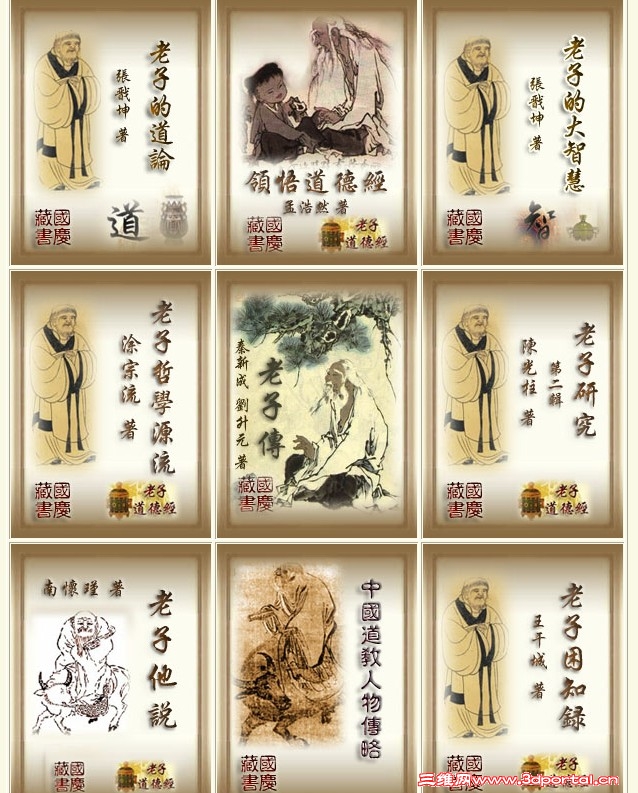 老子的道論
張戩坤 著
道
國慶
藏書
領悟道德經
孟浩然 著
國慶
藏書
老子
道德經
老子的大智慧
張戩坤 著
智
國慶
藏書
老子哲學源流
涂宗流 著
國慶
藏書
老子
道德經
老子傳
秦新成 劉升元 著
國慶
藏書
老子研究
第二輯
陳光柱 著
國慶
藏書
老子
道德經
南懷瑾 著
老子他說
國慶
藏書
老子
道德經
中國道教人物傳略
國慶
藏書
老子困知錄
王干城 著
國慶
藏書
老子
道德經
三维网www.3dportal.cn